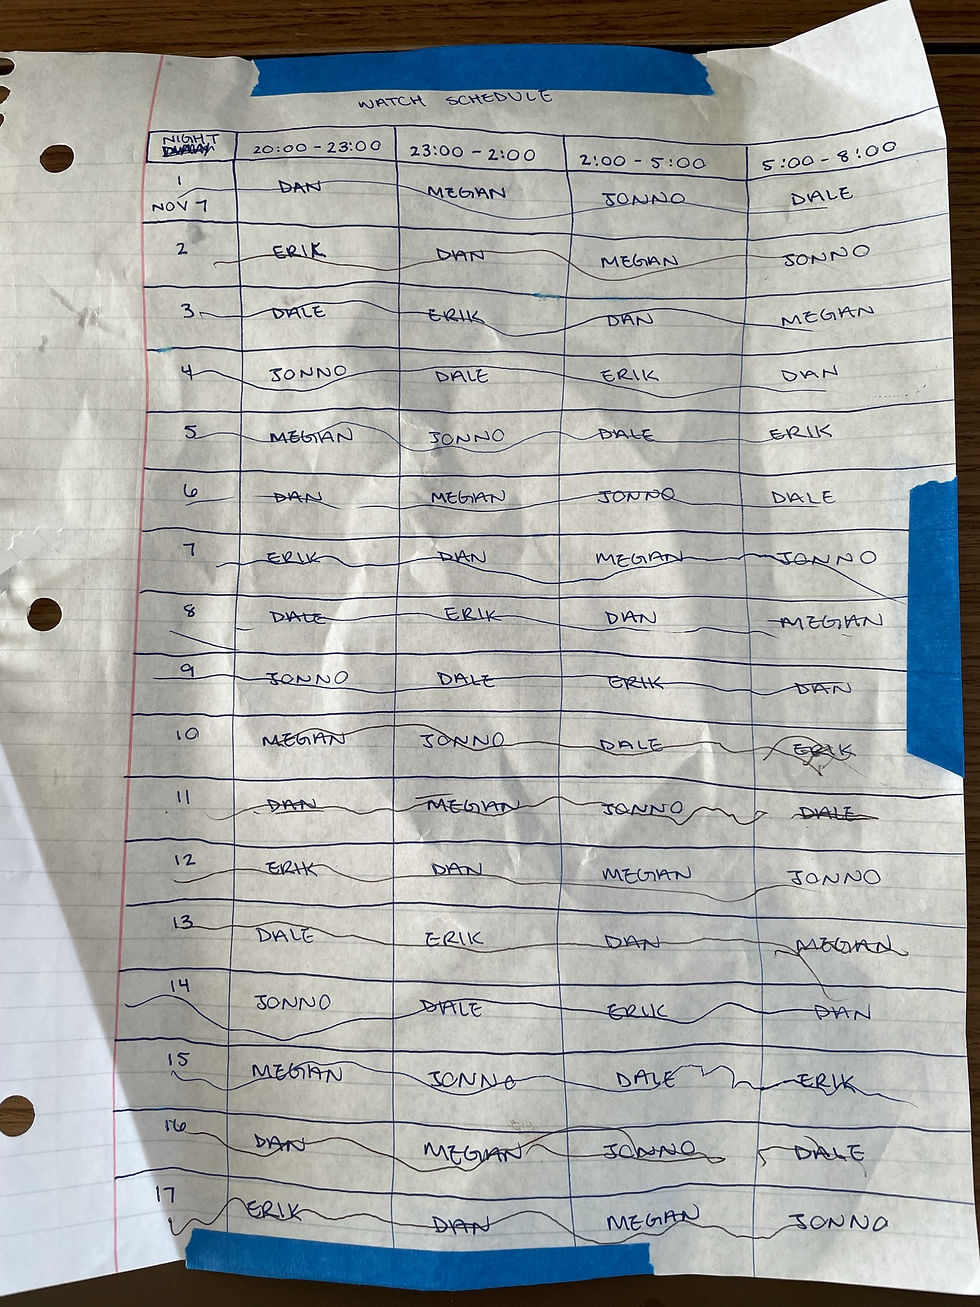 WATCH SCHEDULE
NIGHT 20:00 - 23:00 23:00 - 2:00 2:00 - 5:00 5:00 - 8:00
1 NOV 7 DAN MEGAN JONNO DALE
2 ERIK DAN MEGAN JONNO
3 DALE ERIK DAN MEGAN
4 JONNO DALE ERIK DAN
5 MEGAN JONNO DALE ERIK
6 DAN MEGAN JONNO DALE
7 ERIK DAN MEGAN JONNO
8 DALE ERIK DAN MEGAN
9 JONNO DALE ERIK DAN
10 MEGAN JONNO DALE ERIK
11 DAN MEGAN JONNO DALE
12 ERIK DAN MEGAN JONNO
13 DALE ERIK DAN MEGAN
14 JONNO DALE ERIK DAN
15 MEGAN JONNO DALE ERIK
16 DAN MEGAN JONNO DALE
17 ERIK DAN MEGAN JONNO